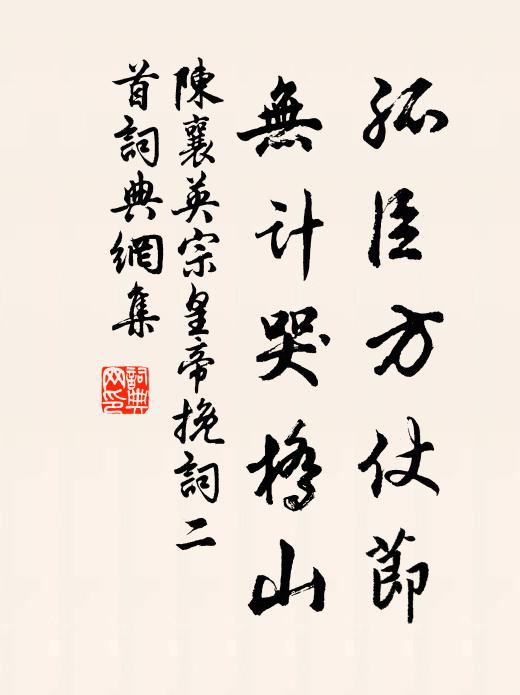 孤臣方仗節
無計哭橋山
陳襄英宗皇帝挽詞二
首詞典網集
詞典网印